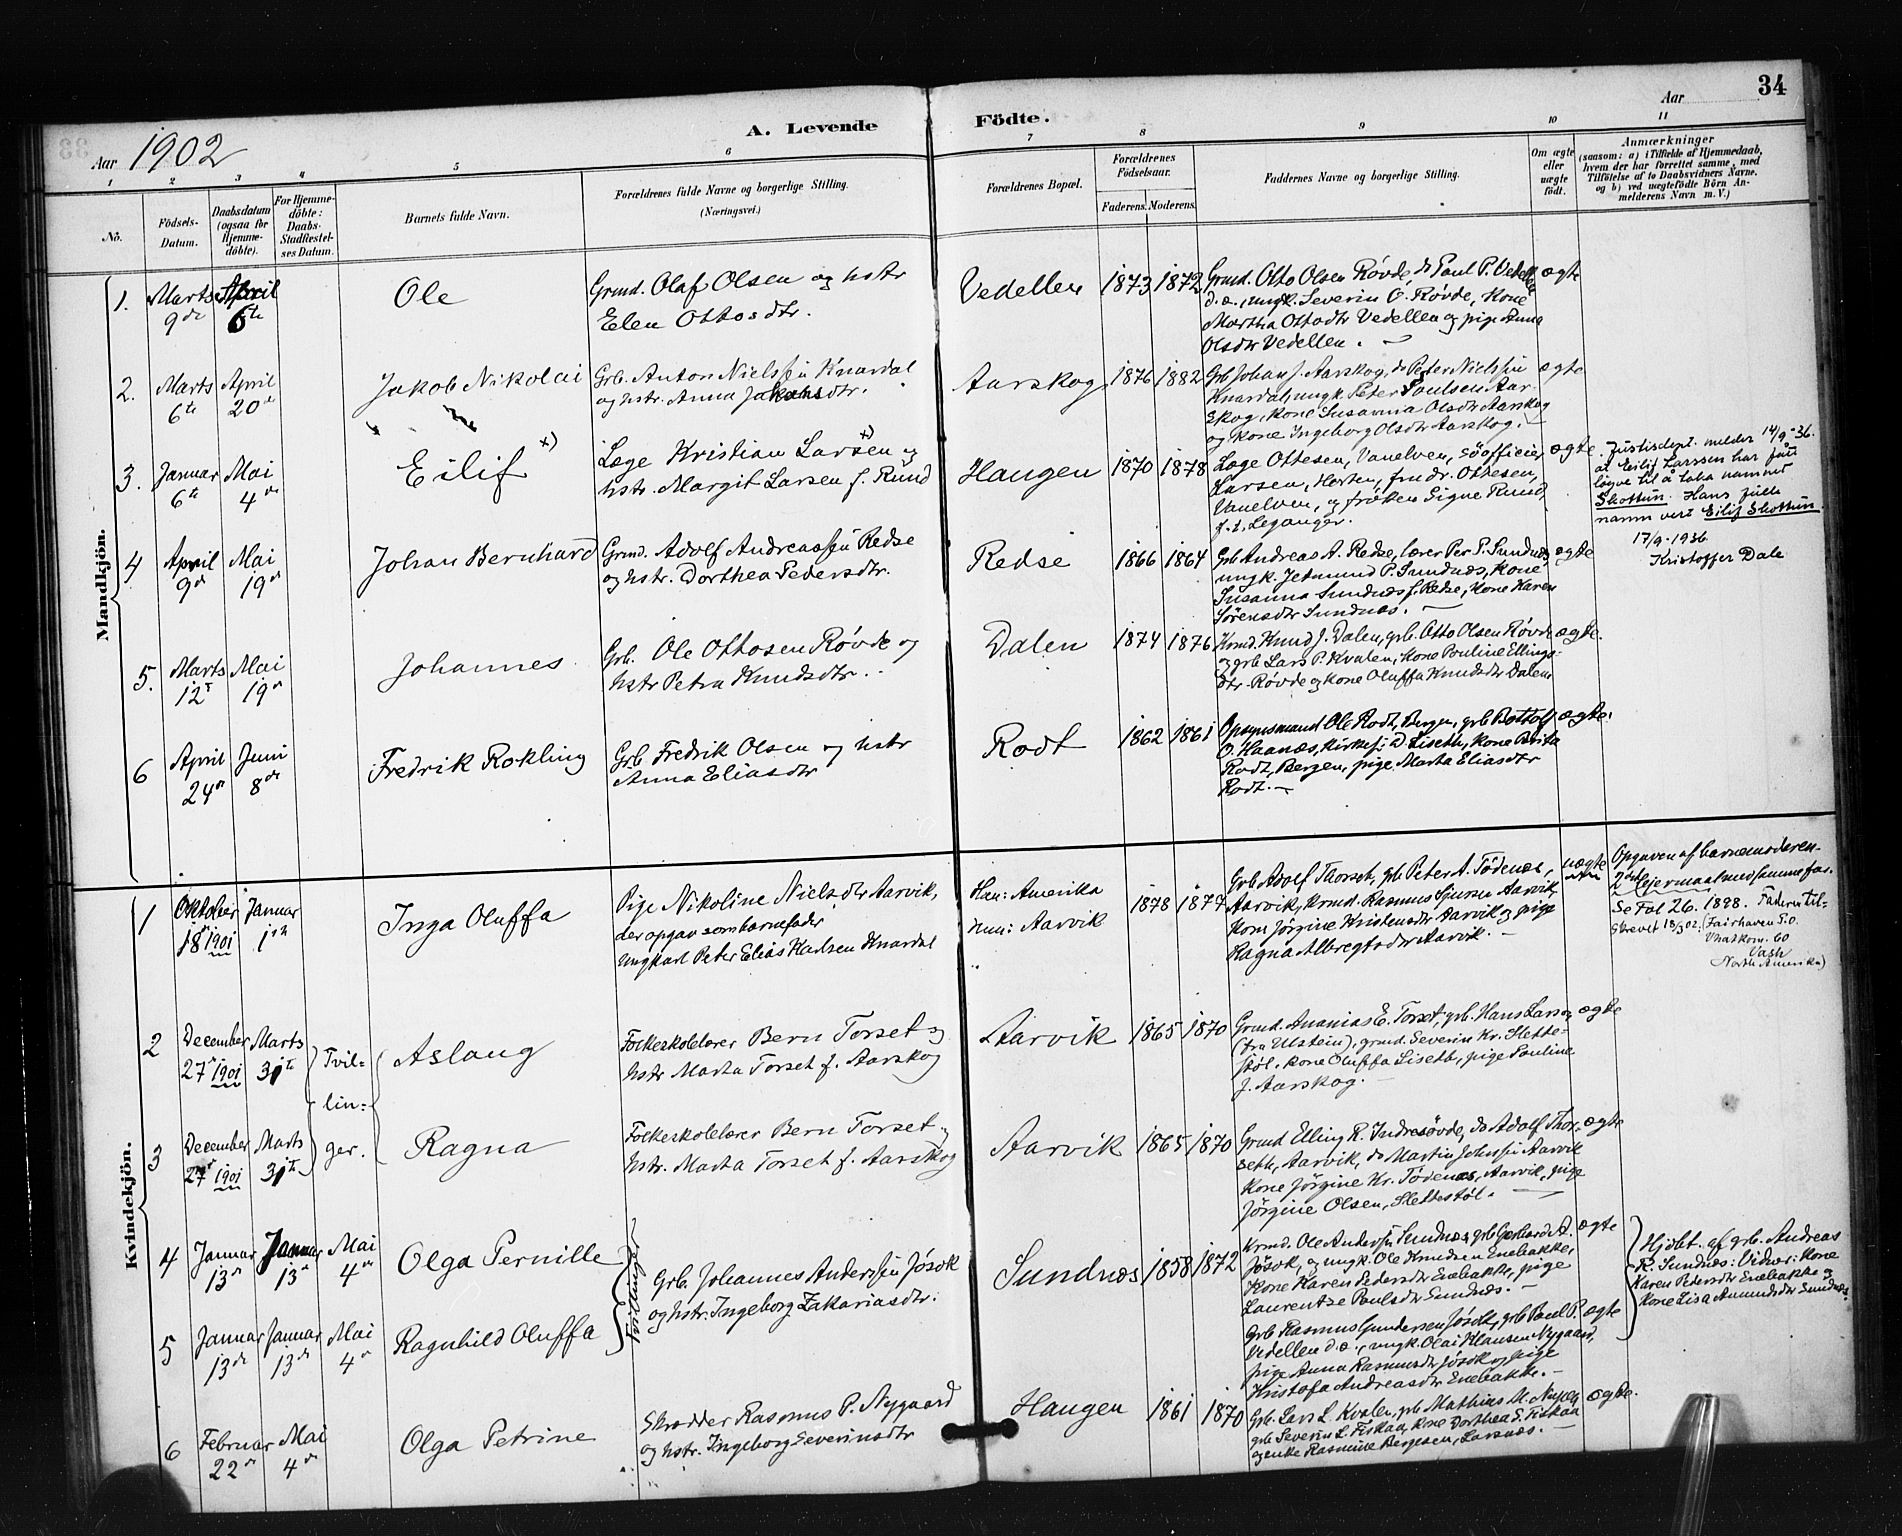 34
Aar 1902
A. Levende Födte.
Aar
1 2 3 4 5 6 7 8 9 10 11
Nò.
Födsels-Datum.
Daabsdatum (ogsaa för Hjemme-döbte).
For Hjemme-döbte: Daabs-Stadfæstel-ses Datum.
Barnets fulde Navn.
Forældrenes fulde Navne og borgerlige Stilling.
(Næringsvei.)
Forældrenes Bopæl.
Forældrenes Födselsaar.
Faderens. Moderens.
Faddernes Navne og borgerlige Stilling.
Om ægte eller uægte födt.
Anmærkninger
(saasom: a) i Tilfælde af Hjemmedaab,
hvem der har forrettet samme, med
Tilföielse af to Daabsvidners Navne.
og b) ved uægtefödte Börn An-
melderens Navn m. V.)
Mandkjön.
1. Marts 9de April 6te
Ole
Grmd. Olaf Olsen og hstr
Elen Ottosdtr.
Vedellen 1873 1872
Grmd. Otto Olsen Røvde, do Paul P. Vedellen
d. æ., ungk. Severin O. Røvde, Kone
Martha Ottodtr Vedellen og pige Anna
Olsdtr Vedellen.
ægte
2. Marts 6te April 20de
Jakob Nikolai
Grb. Anton Nielssøn Knardal
og hstr. Anna Jakobsdtr.
Aarskog 1876 1882
Grb Johan J. Aarskog, do Peter Nielssøn
Knardal, ungk Peter Poulsen Aar-
skog, kone Susanna Olsdtr Aarskog
og kone Ingeborg Olsdtr Aarskog.
ægte
3. Januar 6te Mai 4de
Eilif x)
Læge Kristian Larsen x) og
hstr. Margit Larsen f. Rund
Haugen 1870 1878
Læge Ottesen, Vanelven, søofficier
Larsen, Horten, fru dr. Ottesen,
Vanelven, og frøken Signe Rund,
p. t. Leganger.
ægte
Justisdept. melder 14/9-36.
at Eilif Larssen har fått
løyve til å taka namnet
Skottun. Hans fulle
namn vert Eilif Skottun.
17/9-1936
Kristoffer Dale
4 April 9de Mai 19de
Johan Bernhard
Grmd. Adolf Andreassøn Redse
og hstr. Dorthea Pedersdtr.
Redse 1866 1864
Grb Andreas A. Redse, lærer Per P. Sundnæs,
ungk. Jetmund P. Sundnæs, Kone
Susanna Sundnæs f. Redse, Kone Karen
Sørensdtr Sundnæs.
ægte
5. Marts 12te Mai 19de
Johannes
Grb. Ole Ottosen Røvde og
hstr Petra Knudsdtr.
Dalen 1874 1876
Krmd. Knud J. Dalen, grb. Otto Olsen Røvde
og grb Lars P. Kvalen, Kone Pauline Ellings-
dtr. Røvde og kone Oluffa Knudsdtr Dalen
ægte.
6 April 24de Juni 8de
Fredrik Rokling
Grb Fredrik Olsen og hstr
Anna Eliasdtr
Rodt 1862 1861
Opsynsmand Ole Rodt, Bergen, grb Bottolf
O. Haanæs, kirkes: D. Liseth, Kone Brita
Rodt, Bergen, pige Marta Eliasdtr
Rodt.
ægte.
Kvindekjön.
1 Oktober 18de 1901 Januar 1ste
Inga Oluffa
Pige Nikoline Nielsdtr Aarvik,
der opgav som barnefader
ungkarl Peter Elias Karlsen Knardal
Han: Amerika
Hun: Aarvik
1878 1877
Grb Adolf Thorset, grb Peter A. Tödenæs,
Aarvik, krmd. Rasmus Sjursen Aarvik
Kone Jørgine Kristensdtr Aarvik og pige
Ragna Albregtsdtr Aarvik.
uægte
Opgaven af barnemoderen.
2det leiermaal med samme far.
Se Fol 26. 1898. Faderen til-
skrevet 18/3 02. (Fairhaven P.O.
Whatkom. Co
Vash
North Amerika)
2 December 27de 1901 Marts 31te
Tvil-
lin-
ger.
Aslaug
Folkeskolelærer Bern Torset og
hstr Marta Torset f. Aarskog
Aarvik 1865 1870
Grmd. Ananias E. Torset, grb. Hans Larsen
(fra Ulstein), grmd. Severin Kr. Slette-
støl, kone Oluffa Liseth, pige Pauline
J. Aarskog.
ægte
3 December 27de 1901 Marts 31te
Ragna
Folkeskolelærer Bern Torset og
hstr. Marta Torset f. Aarskog
Aarvik 1865 1870
Grmd Elling R. Indresøvde, do Adolf Thor-
seth, Aarvik, do Martin Johnsøn Aarvik
Kone Jörgine Kr. Tödenæs, Aarvik, pige
Jörgine Olsen, Slettestöl.
ægte
4 Januar 13de Januar 13de Mai 4de
Olga Pernille
Tvillinger
Grb. Johannes Anderssøn Jøsok
og hstr. Ingeborg Zakariasdtr.
Sundnæs 1858 1872
Krmd. Ole Anderssøn Sundnæs, grb Gerhard A.
Jøsok, og ungk. Ole Knudsen Enebakke,
Kone Karen Pedersdtr Enebakke, pige
Laurentse Paulsdtr Sundnæs.
ægte
Hjdbt. af grb. Andreas
R. Sundnæs: Vidner: Kone
Karen Pedersdtr Enebakke og
Kone Lisa Amundsdtr Sundnæs.
5 Januar 13de Januar 13de Mai 4de
Ragnhild Oluffa
Grb Rasmus Gundersen Jøsok, grb Paul P.
Vedellen d. æ., ungk. Olai Klausen Nygaard,
pige Anna Rasmusdtr Jøsok og pige
Kristofa Andreasdtr Enebakke.
ægte
6 Februar 22de Mai 4de
Olga Petrine
Skrædder Rasmus P. Nygaard
og hstr. Ingeborg Severinsdtr
Haugen 1861 1870
Grb. Lars L. Kvalen, grb Mathias M.
grb Severin L. Fiskaa, Kone Dorthea S. Fiskaa
og enke Rasmine Bergesen, Larsnæs.
ægte.